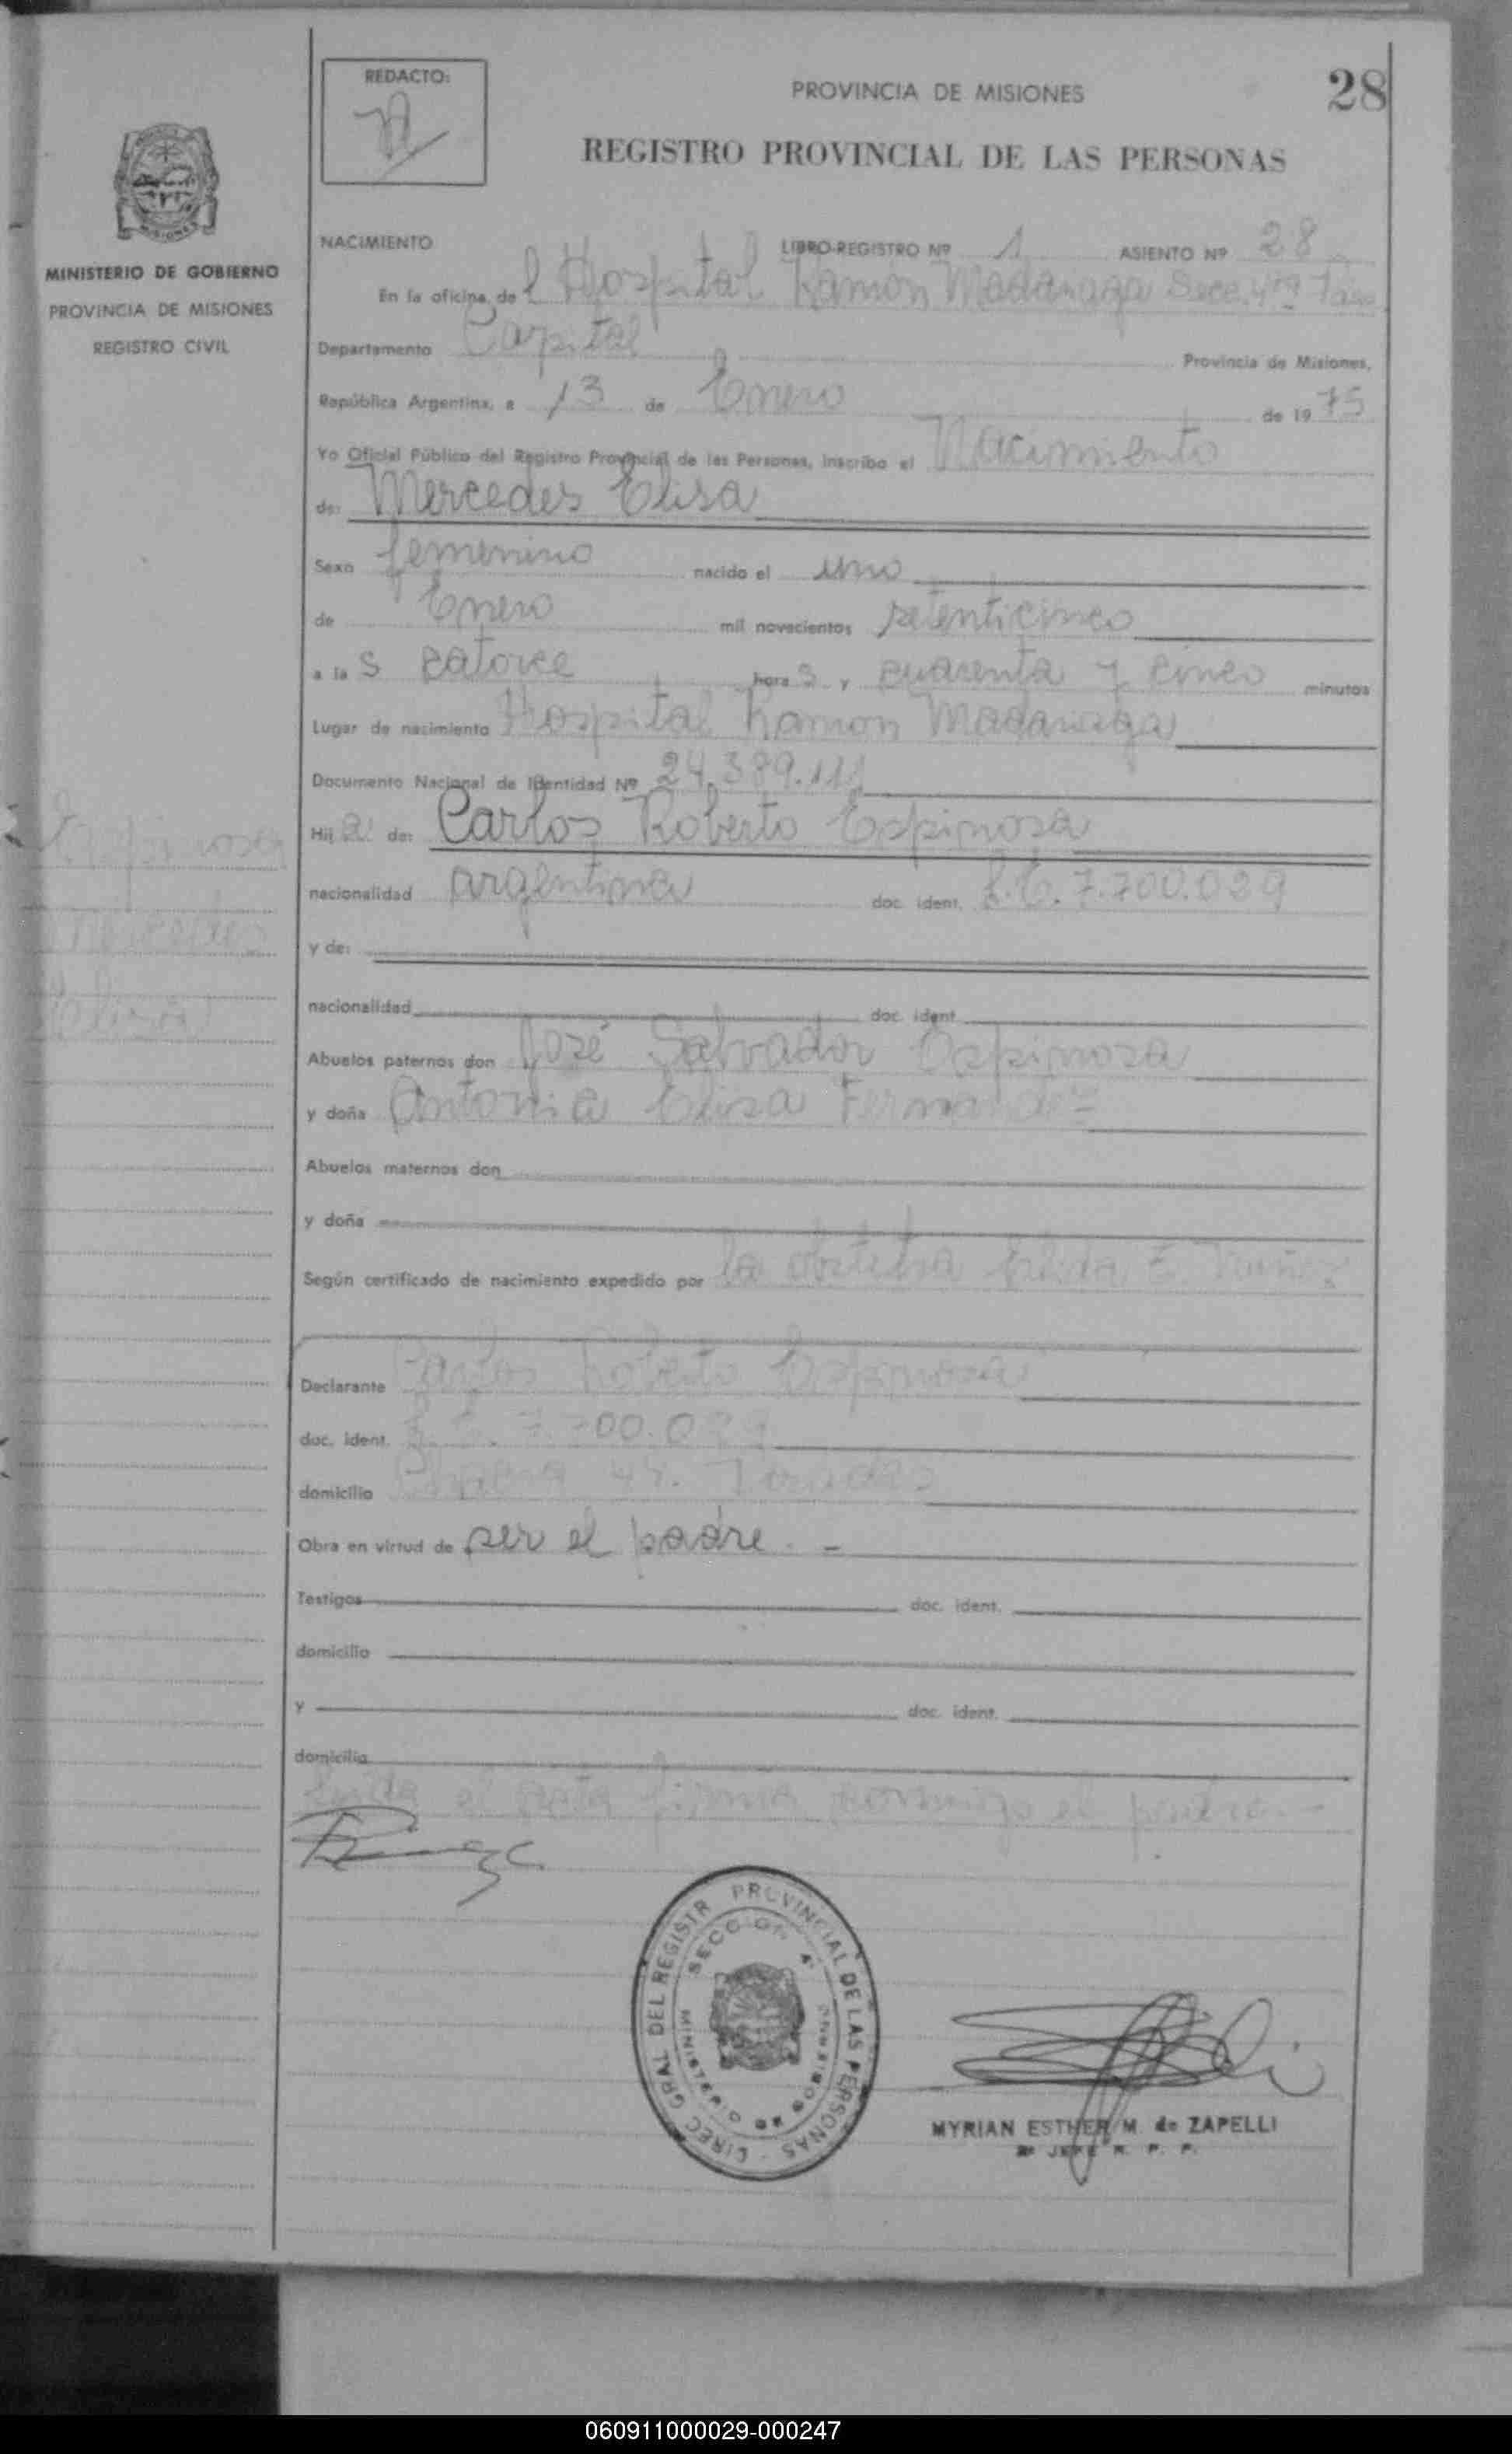 REDACTO:
PROVINCIA DE MISIONES
28
REGISTRO PROVINCIAL DE LAS PERSONAS
MISIONES
MINISTERIO DE GOBIERNO
PROVINCIA DE MISIONES
REGISTRO CIVIL
NACIMIENTO LIBRO-REGISTRO Nº 1 ASIENTO Nº 28
En la oficina de l Hospital Ramon Madariaga Secc. 4ta
Departamento Capital Provincia de Misiones,
República Argentina, a 13 de Enero de 1975
Yo Oficial Público del Registro Provincial de las Personas, inscribo el Nacimiento
de: Mercedes Elisa
Sexo femenino nacido el uno
de Enero mil novecientos setenticinco
a las catorce horas y cuarenta y cinco minutos
Lugar de nacimiento Hospital Ramon Madariaga
Documento Nacional de Identidad Nº 24.389.111
Hija de: Carlos Roberto Espinosa
Espinosa
Mercedes
Elisa
nacionalidad argentina doc. ident. L.E. 7.700.029
y de:
nacionalidad doc. ident.
Abuelos paternos don José Salvador Espinosa
y doña Antonia Elisa Fernandez
Abuelos maternos don
y doña
Según certificado de nacimiento expedido por la obstetra E.
Declarante Carlos Roberto Espinosa
doc. ident. L.E. 7.700.029
domicilio Chacra
Obra en virtud de ser el padre. -
Testigos doc. ident.
domicilio
y doc. ident.
domicilio
Leida el acta firma conmigo el padre. -
DIREC GRAL DEL REGISTR PROVINCIAL DE LAS PERSONAS
SECCION 4
MINISTERIO DE GOBIERNO
MYRIAN ESTHER M. de ZAPELLI
JEFE R. P. P.
060911000029-000247